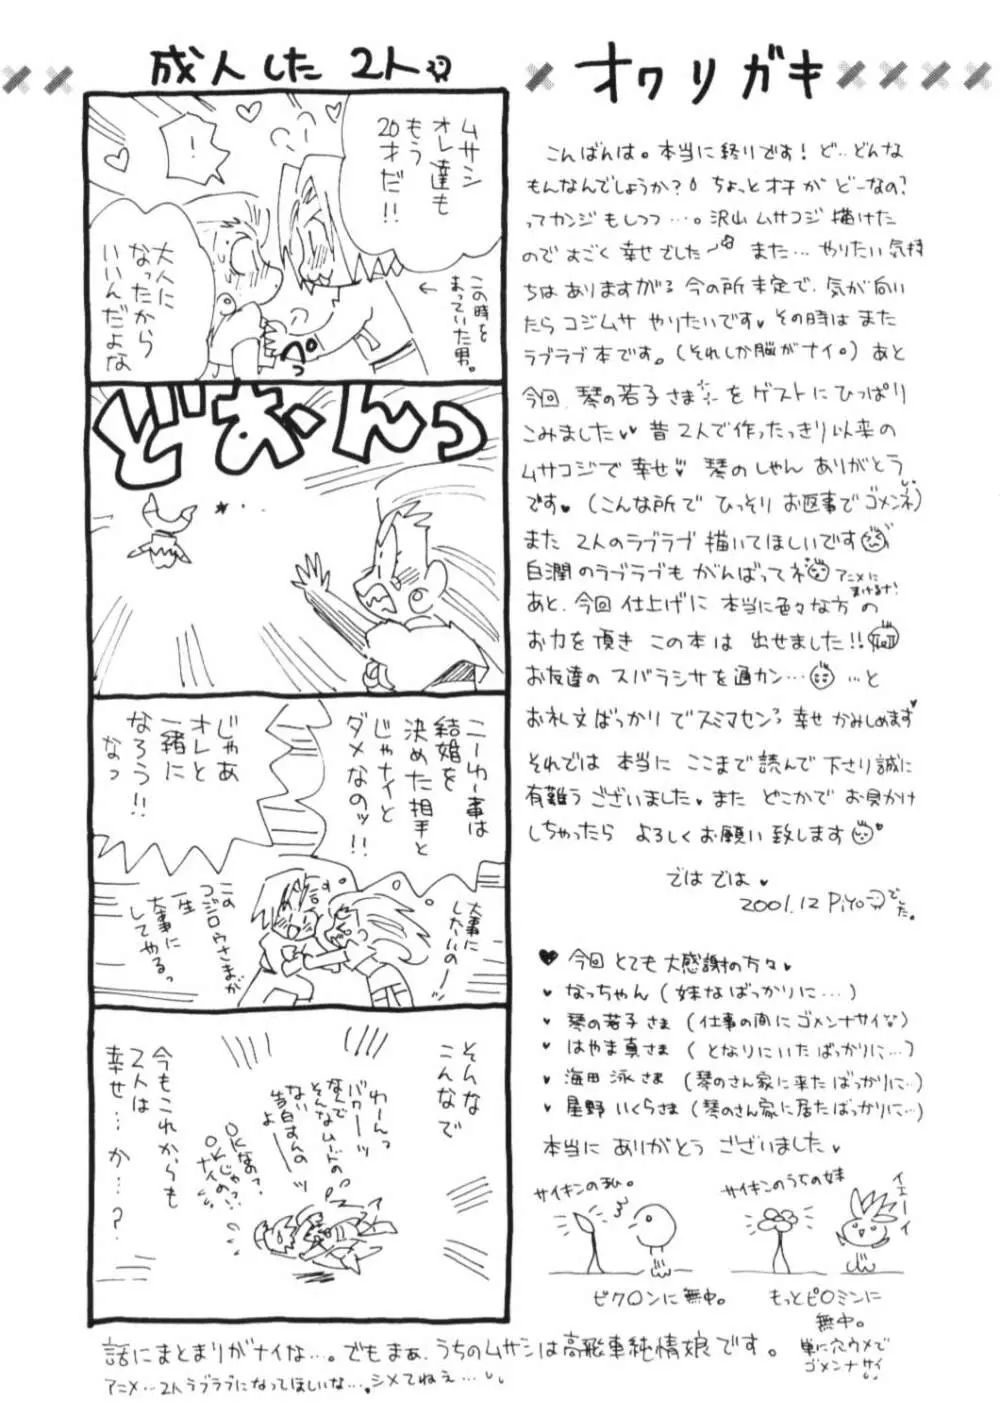 成人した 2人
ムサシ
オレ達も
もう
20才だ!!
!
この時を
まっていた男。
←
大人に
なったから
いいんだよな
ぺっ
どおーんっ
こーゆー事は
結婚を
決めた相手と
じゃナイと
ダメなのッ!!
じゃあ
オレと
一緒に
なろう!!
なっ
大事に
したいのー
この
コジロウさまが
一生
大事に
してやるっ
そんな
こんなで
わーんっ
バカーッ
なんで
そんなムードの
ない
告白すんの
よー
OKなの?
OKじゃ
ナイの!?
今もこれからも
2人は
幸せ…か…?
話にまとまりがナイな…。でもまぁ、うちのムサシは高飛車純情娘です。
アニメ…2人ラブラブになってほしいな…シメてねぇ…
オワリガキ
こんばんは。本当に終りです!ど…どんな
もんなんでしょうか? ちょっとオチがどーなの?
ってカンジもしつつ…。沢山ムサコジ描けた
のですごく幸せでした また…やりたい気持
ちはありますがる 今の所未定で、気が向い
たらコジムサやりたいです♥その時はまた
ラブラブ本です。(それしか脳がナイ。)あと
今回、琴の若子さまをゲストにひっぱり
こみました♥昔2人で作ったっきり以来の
ムサコジで幸せ♥琴のしゃんありがとう
です♥(こんな所でひっそりお返事でゴメンネ)
また2人のラブラブ描いてほしいです
自潤のラブラブもがんばってネ アニメに
まけるな!
あと、今回仕上げに本当に色々な方の
お力を頂きこの本は出せました!!
お友達のスバラシサを痛カン… …と
お礼文ばっかりでスミマセン 幸せかみしめます♥
それでは本当にここまで読んで下さり誠に
有難うございました♥またどこかでお見かけ
しちゃったらよろしくお願い致します♥
ではでは♥
2001.12 Piyoでした。
♥今回とても大感謝の方々♥
♥なっちゃん(妹なばっかりに…)
♥琴の若子さま(仕事の間にゴメンナサイ)
♥はやま真さま(となりにいたばっかりに…)
♥海田泳さま(琴のさん家に来たばっかりに…)
♥星野いくらさま(琴のさん家に居たばっかりに…)
本当にありがとうございました♥
サイキンの私。
ピクOンに無中。
サイキンのうちの妹
イエーイ
もっとピOミンに
無中。
単に穴ウメで
ゴメンナサイ